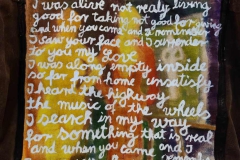 I was alive not realy living
good for taking not good for giving
and when you came and I remember
I saw your face and I surrender
to you my love
I was alone, empty inside
so far from home unsatisfy
I heard the highway
the music of the wheels
I search in my way
for something that is real
and when you came and I